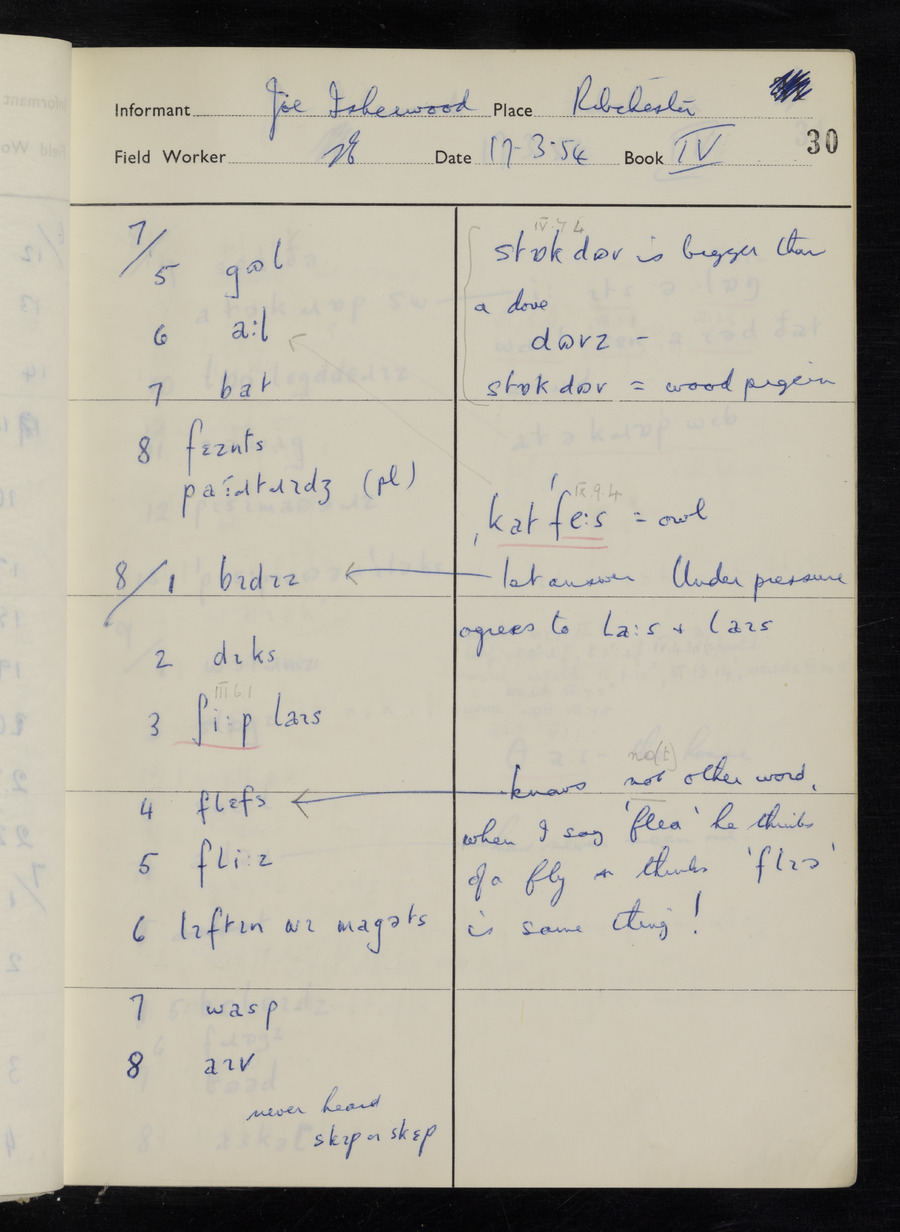 Informant Joe Isherwood Place Ribchester
30
Field Worker Date 17-3-54 Book IV
7/5 gɷl
6 a:l
7 bat
8 fɛznts
(pl)
8/1 bɪdɪz
2 dɪks
III 6.1
3 ʃi:p laɪs
4 flɛfs
5 fli:z
6 lɪftɪn wɪ magəts
7 wasp
8 aɪv
never heard
skɪp or skɛp
IV.7.4
stɒkdɷv is bigger than
a dove
dɷvz -
stɒkdɷv = wood pigein
IX.9.4
ˌkat ˈfe:s = owl
1st answer Under pressure
agrees to la:s + laɪs
no(t)
knows not other word,
when I say 'flea' he thinks
of a fly + thinks 'flɪə'
is same thing!